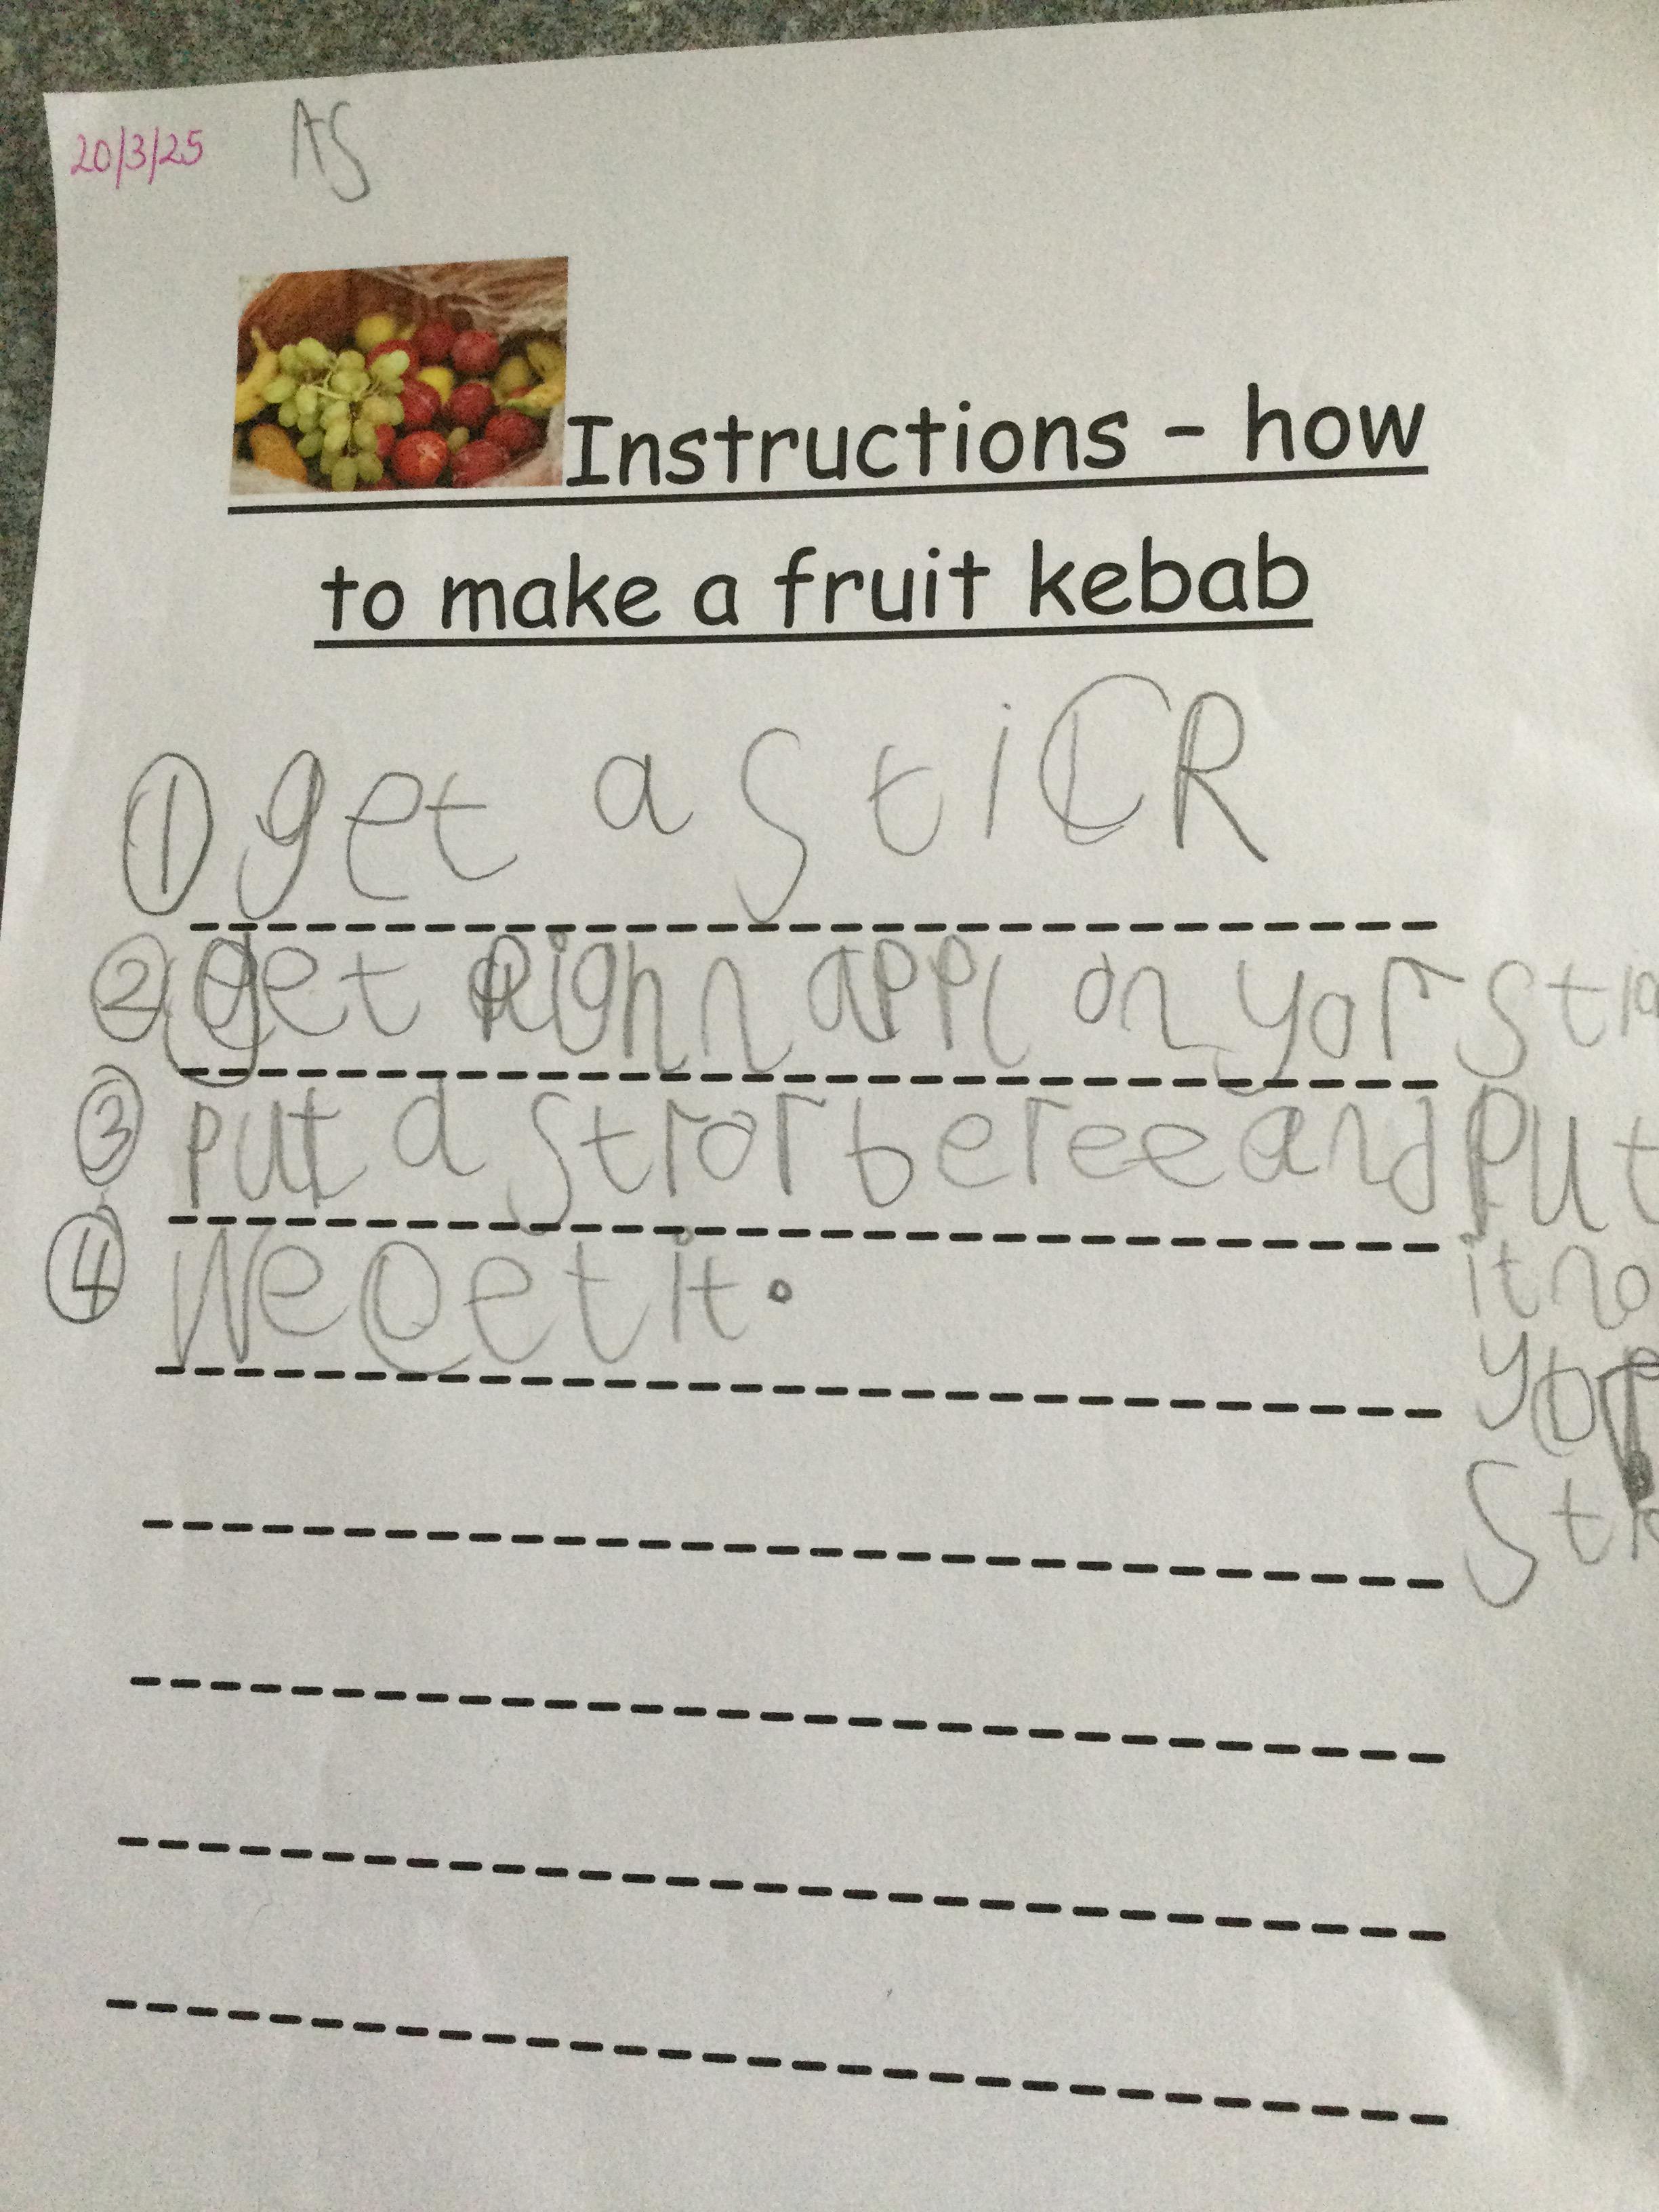 20/3/25 AS
Instructions - how
to make a fruit kebab
① get a stiCR
② get appl on yor
③ put a strorberee and put
it
④ We eet it.